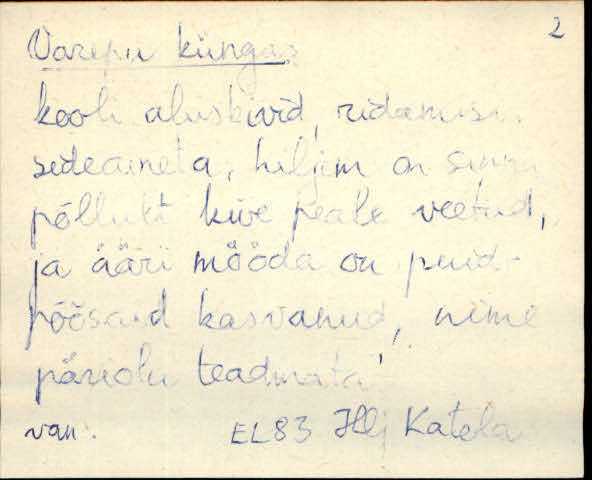 2
Varepu küngas
kooli aluskivid, ridamisi
sideaineta, hiljem on sinna
põllult kive peale veetud,
ja ääri mööda on puid-
põõsaid kasvanud, nime
päriolu teadmata!
van. EL83 Hlj Katela